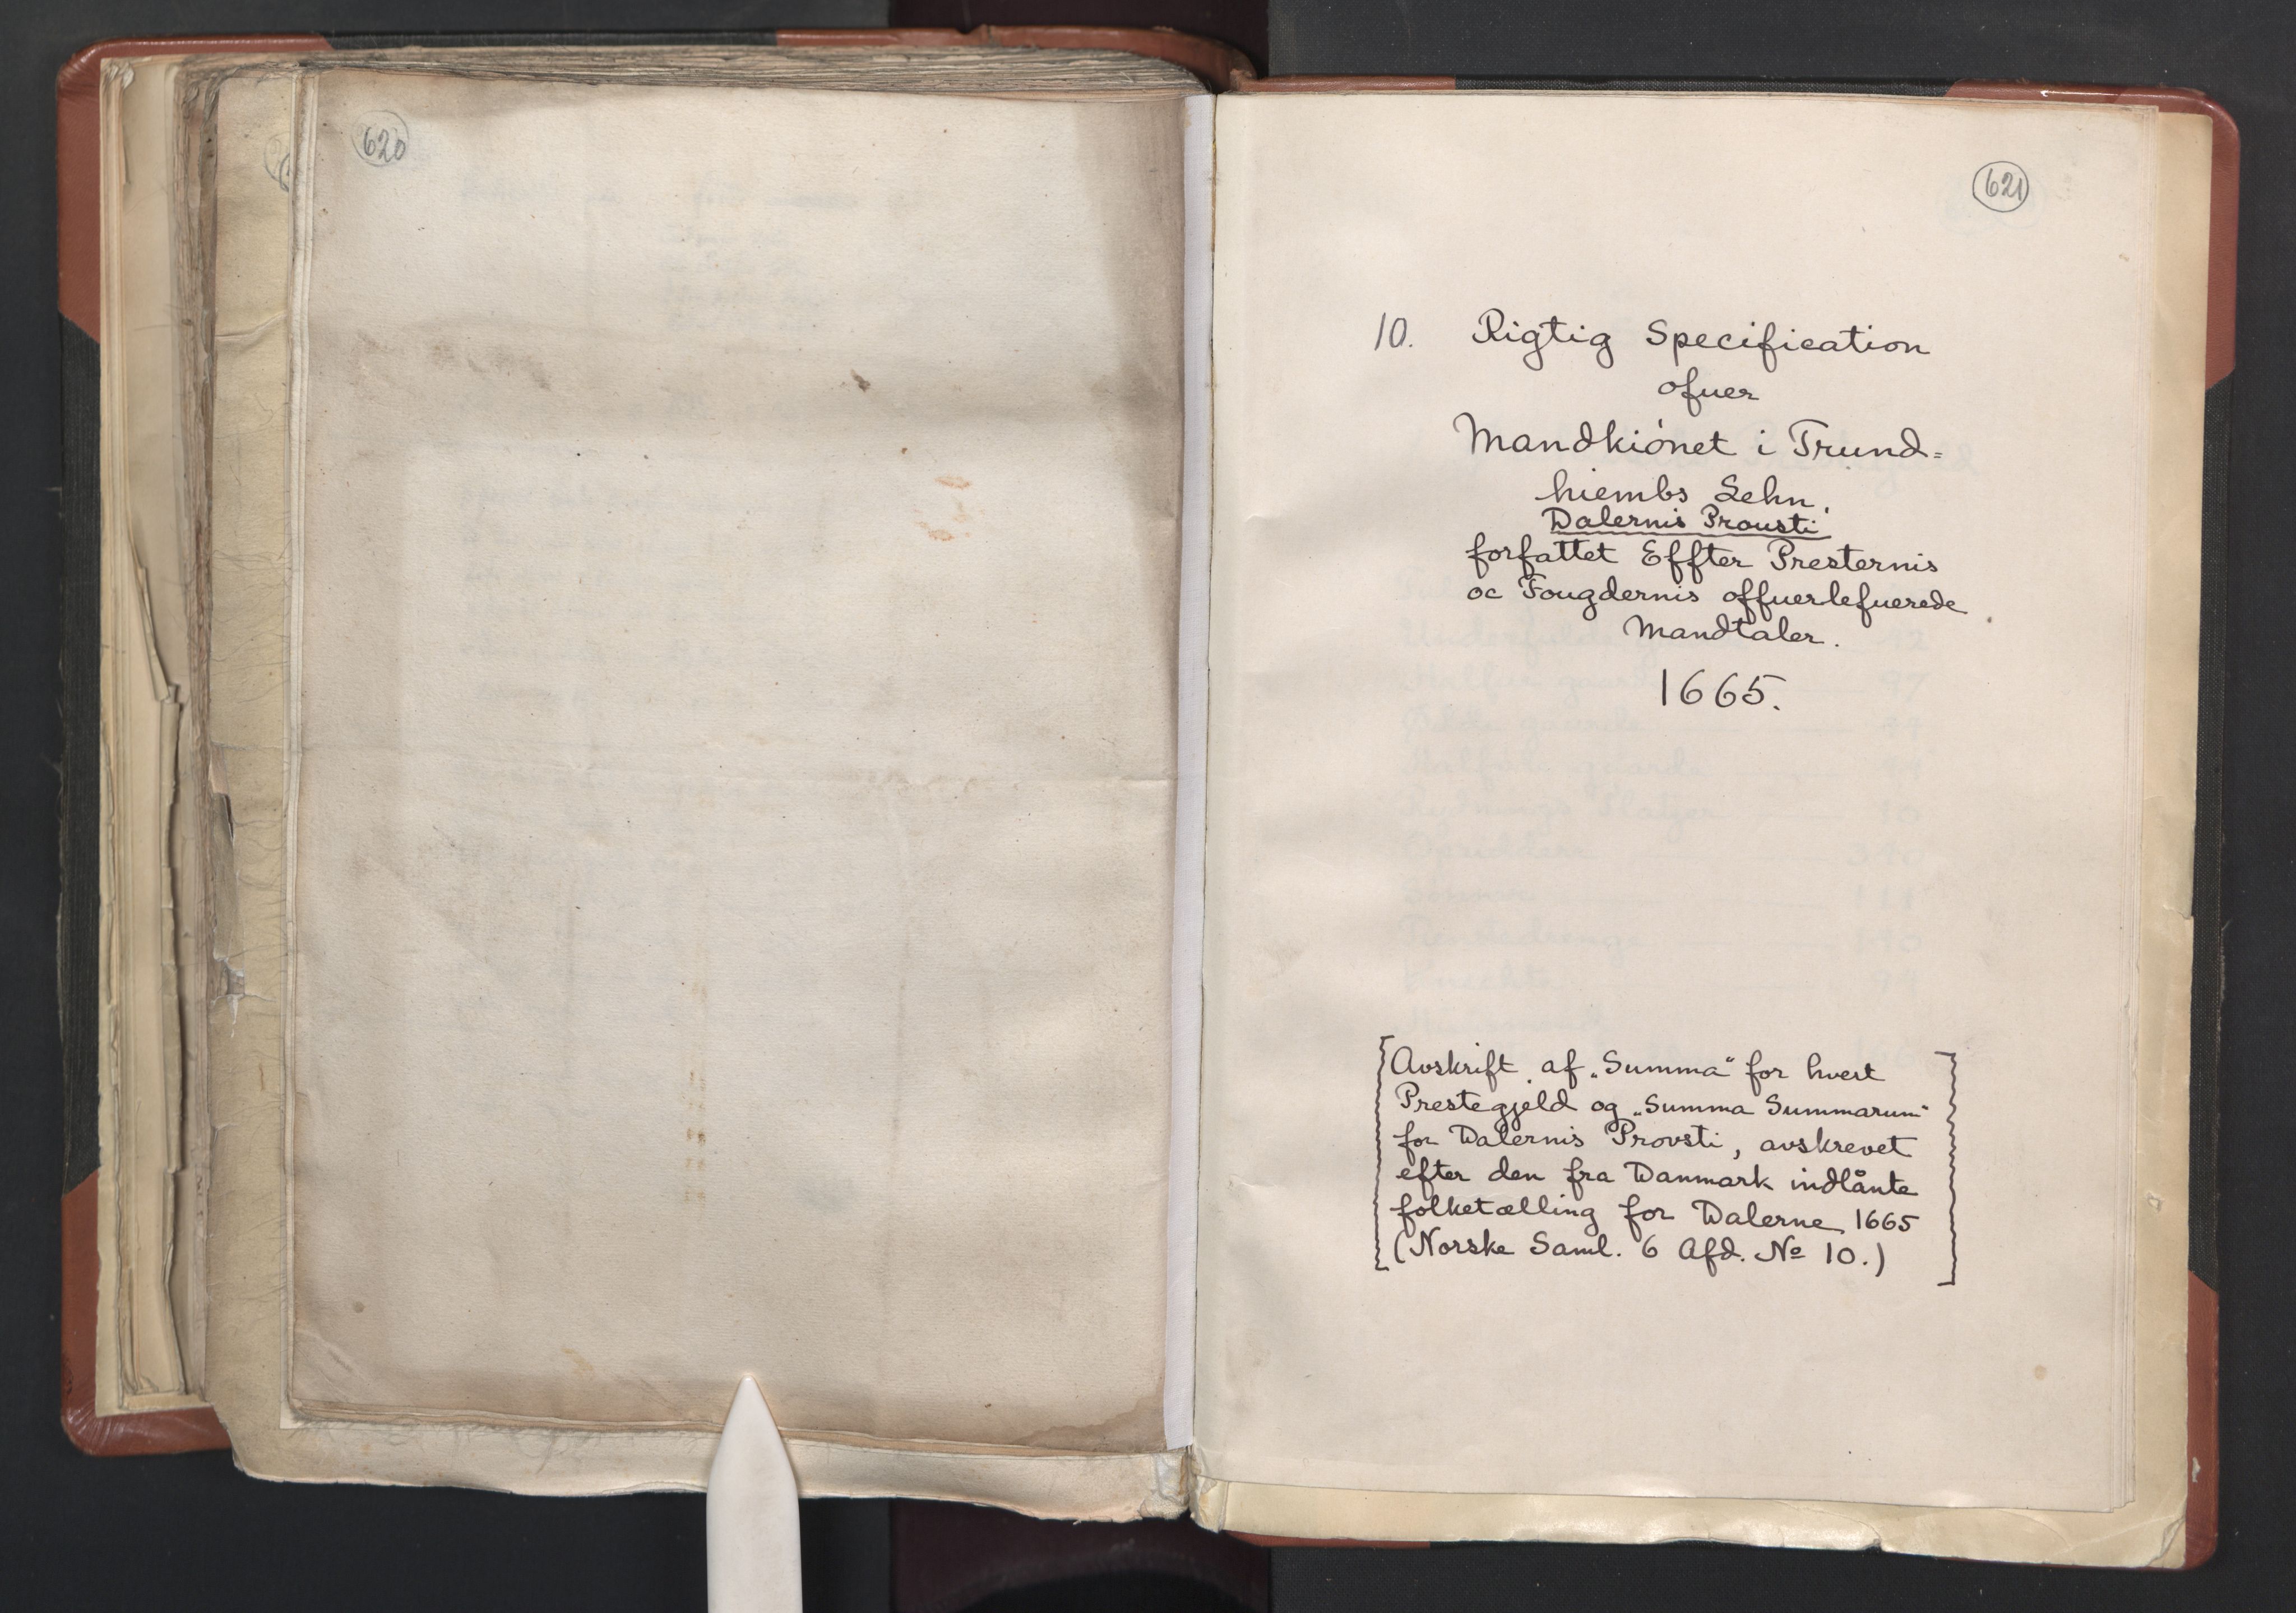 620
621
10. Rigtig Specification
ofuer
Mandkiónet i Trund=
hiembs Lehn,
Dalernis Prousti
forfattet Effter Presternis
oc Fougdernis offuerlefuerede
Mandtaler.
1665.
Avskrift af „Summa“ for hvert
Prestegjeld og „Summa Summarum“
for Dalernis Provsti, avskrevet
efter den fra Danmark indlånte
folketælling for Dalerne 1665
(Norske Saml. 6 Afd. № 10.)